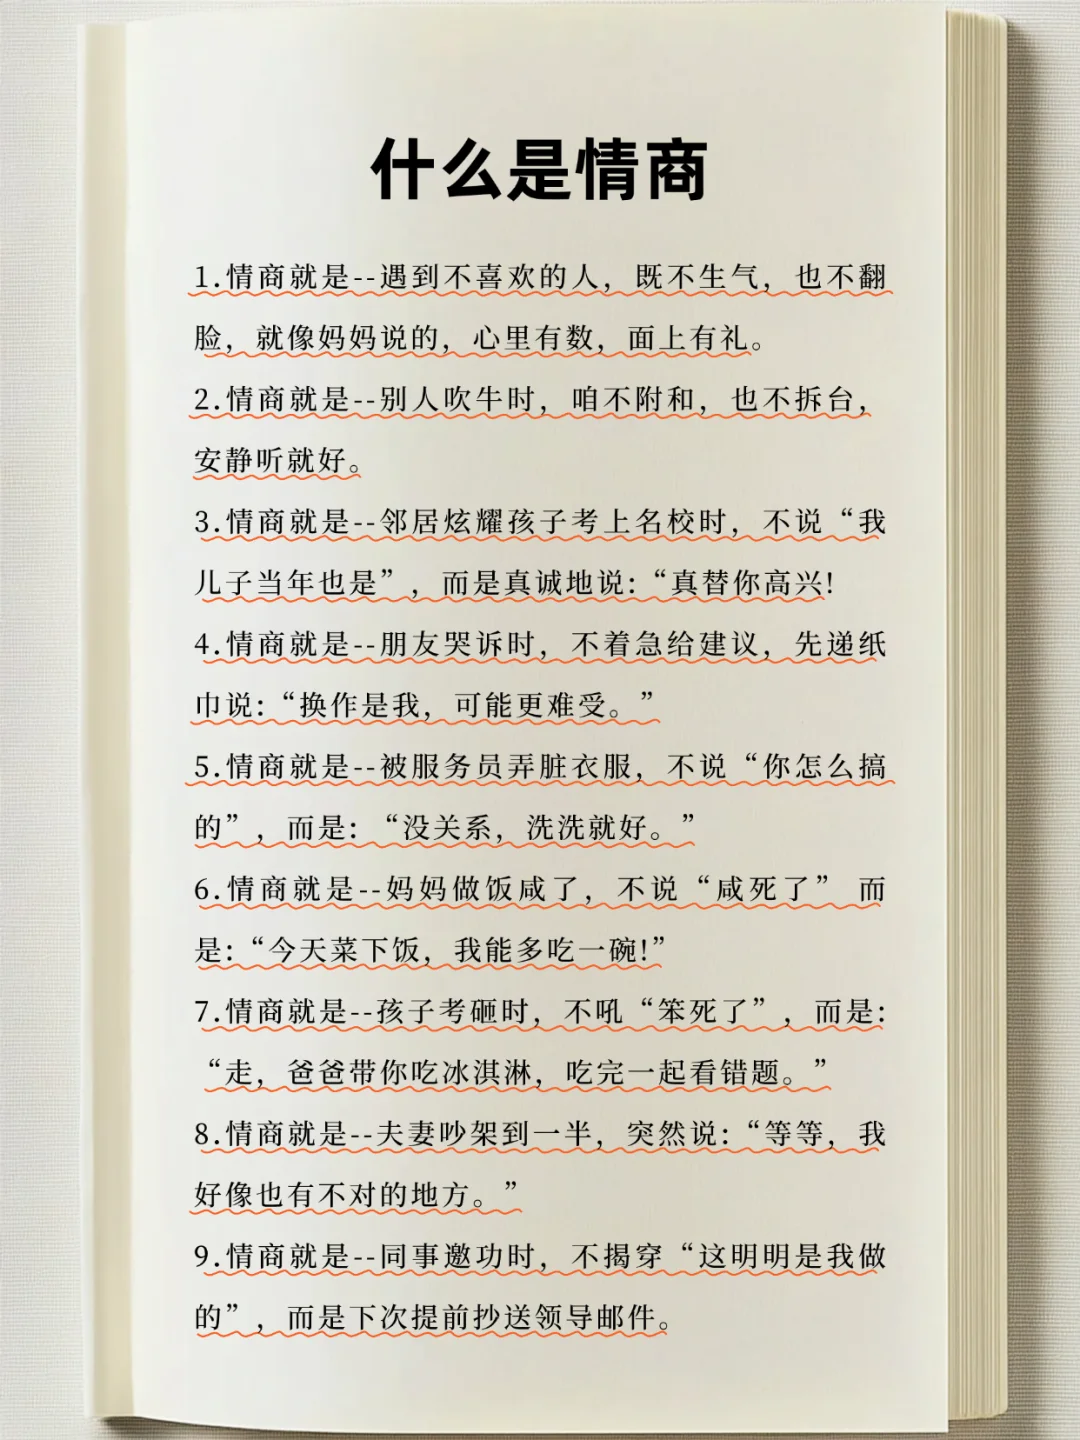 什么是情商
1.情商就是--遇到不喜欢的人，既不生气，也不翻
脸，就像妈妈说的，心里有数，面上有礼。
2.情商就是--别人吹牛时，咱不附和，也不拆台，
安静听就好。
3.情商就是--邻居炫耀孩子考上名校时，不说“我
儿子当年也是”，而是真诚地说：“真替你高兴！
4.情商就是--朋友哭诉时，不着急给建议，先递纸
巾说：“换作是我，可能更难受。”
5.情商就是--被服务员弄脏衣服，不说“你怎么搞
的”，而是：“没关系，洗洗就好。”
6.情商就是--妈妈做饭咸了，不说“咸死了” 而
是：“今天菜下饭，我能多吃一碗！”
7.情商就是--孩子考砸时，不吼“笨死了”，而是：
“走，爸爸带你吃冰淇淋，吃完一起看错题。”
8.情商就是--夫妻吵架到一半，突然说：“等等，我
好像也有不对的地方。”
9.情商就是--同事邀功时，不揭穿“这明明是我做
的”，而是下次提前抄送领导邮件。